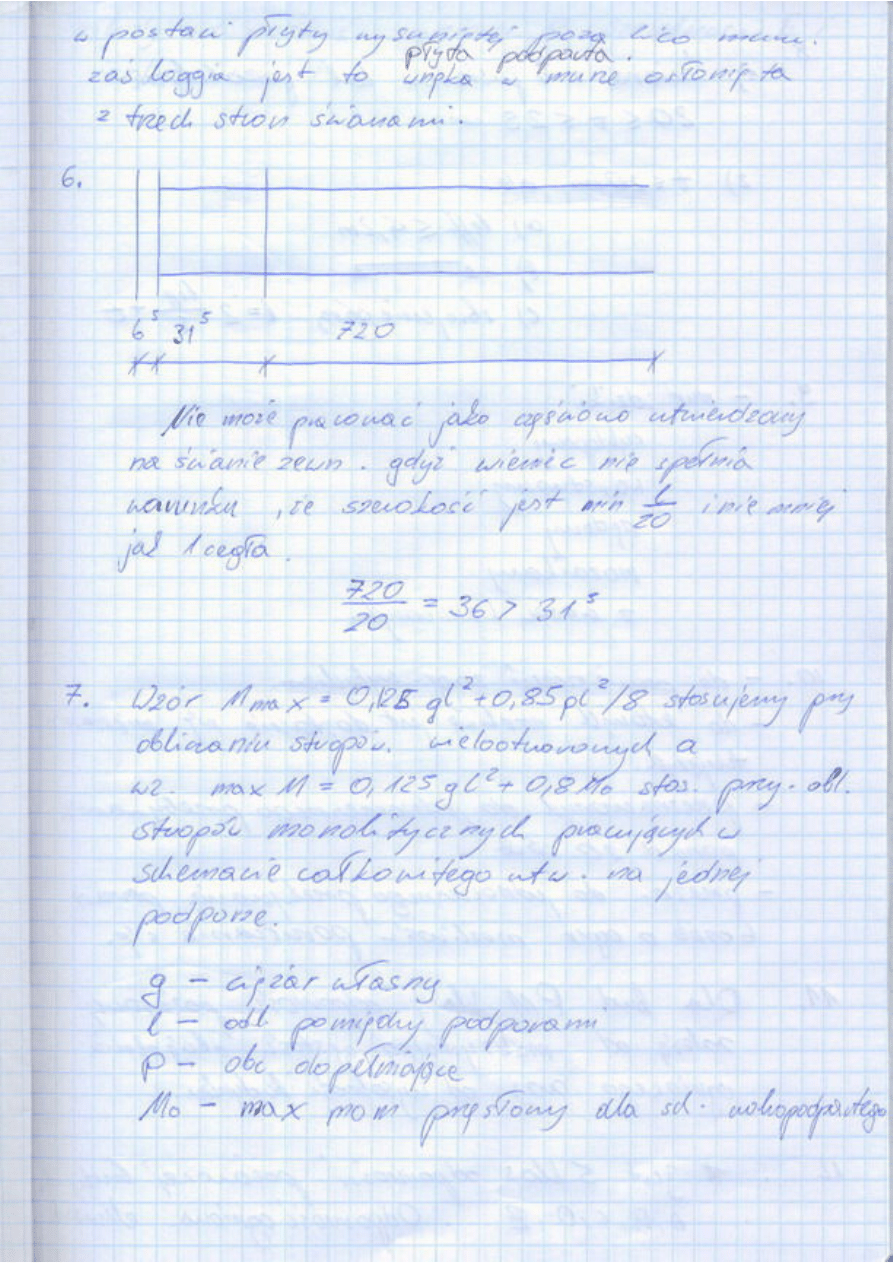 w postaci płyty wysuniętej poza lico muru.
płyta podparta.
zaś loggia jest to wnęka w murze osłonięta
z trzech stron ścianami.
6.
6⁵ 31⁵ 720
Nie może pracować jako częściowo utwierdzony
na ścianie zewn. gdyż wieniec nie spełnia
warunku, że szerokość jest min l/20 i nie mniej
jak 1 cegła.
720/20 = 36 > 31⁵
7. Wzór M max = 0,125 gl² + 0,85 pl²/8 stosujemy przy
obliczaniu stropów. wielootworowych a
wz. max M = 0,125 gl² + 0,8 M₀ stos. przy. obl.
stropów monolitycznych pracujących w
schemacie całkowitego utw. na jednej
podporze.
g – ciężar własny
l – odl pomiędzy podporami
p – obc dopełniające
M₀ – max mom przęsłowy dla sch. wolnopodpartego